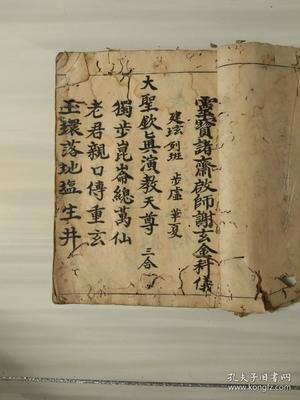 靈寶諸齋啟師謝玄金科儀
建坛 列班 步虛 華夏
大聖欽真演教天尊 三合
獨步崑崙總萬仙
老君親口傳重玄
玉環落地盐生井
孔夫子旧书网